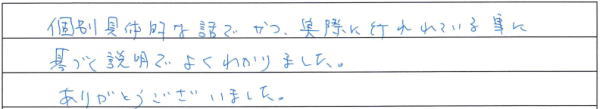 個別具体的な話でかつ、実際に行われている事に
基づく説明でよくわかりました。
ありがとうございました。